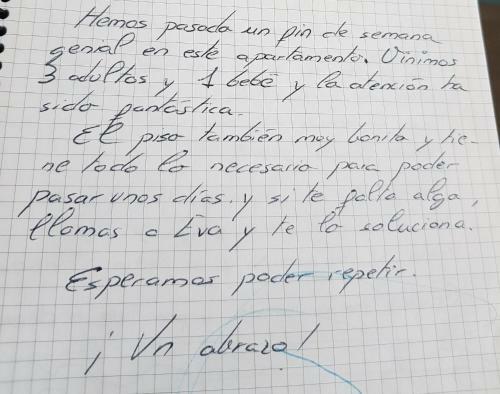 Hemos pasado un fin de semana
genial en este apartamento. Vinimos
3 adultos y 1 bebé y la atención ha
sido fantástica.
El piso también muy bonito y tie-
ne todo lo necesario para poder
pasar unos días. y si te falta algo,
llamas a Eva y te lo soluciona.
Esperamos poder repetir.
¡Un abrazo!